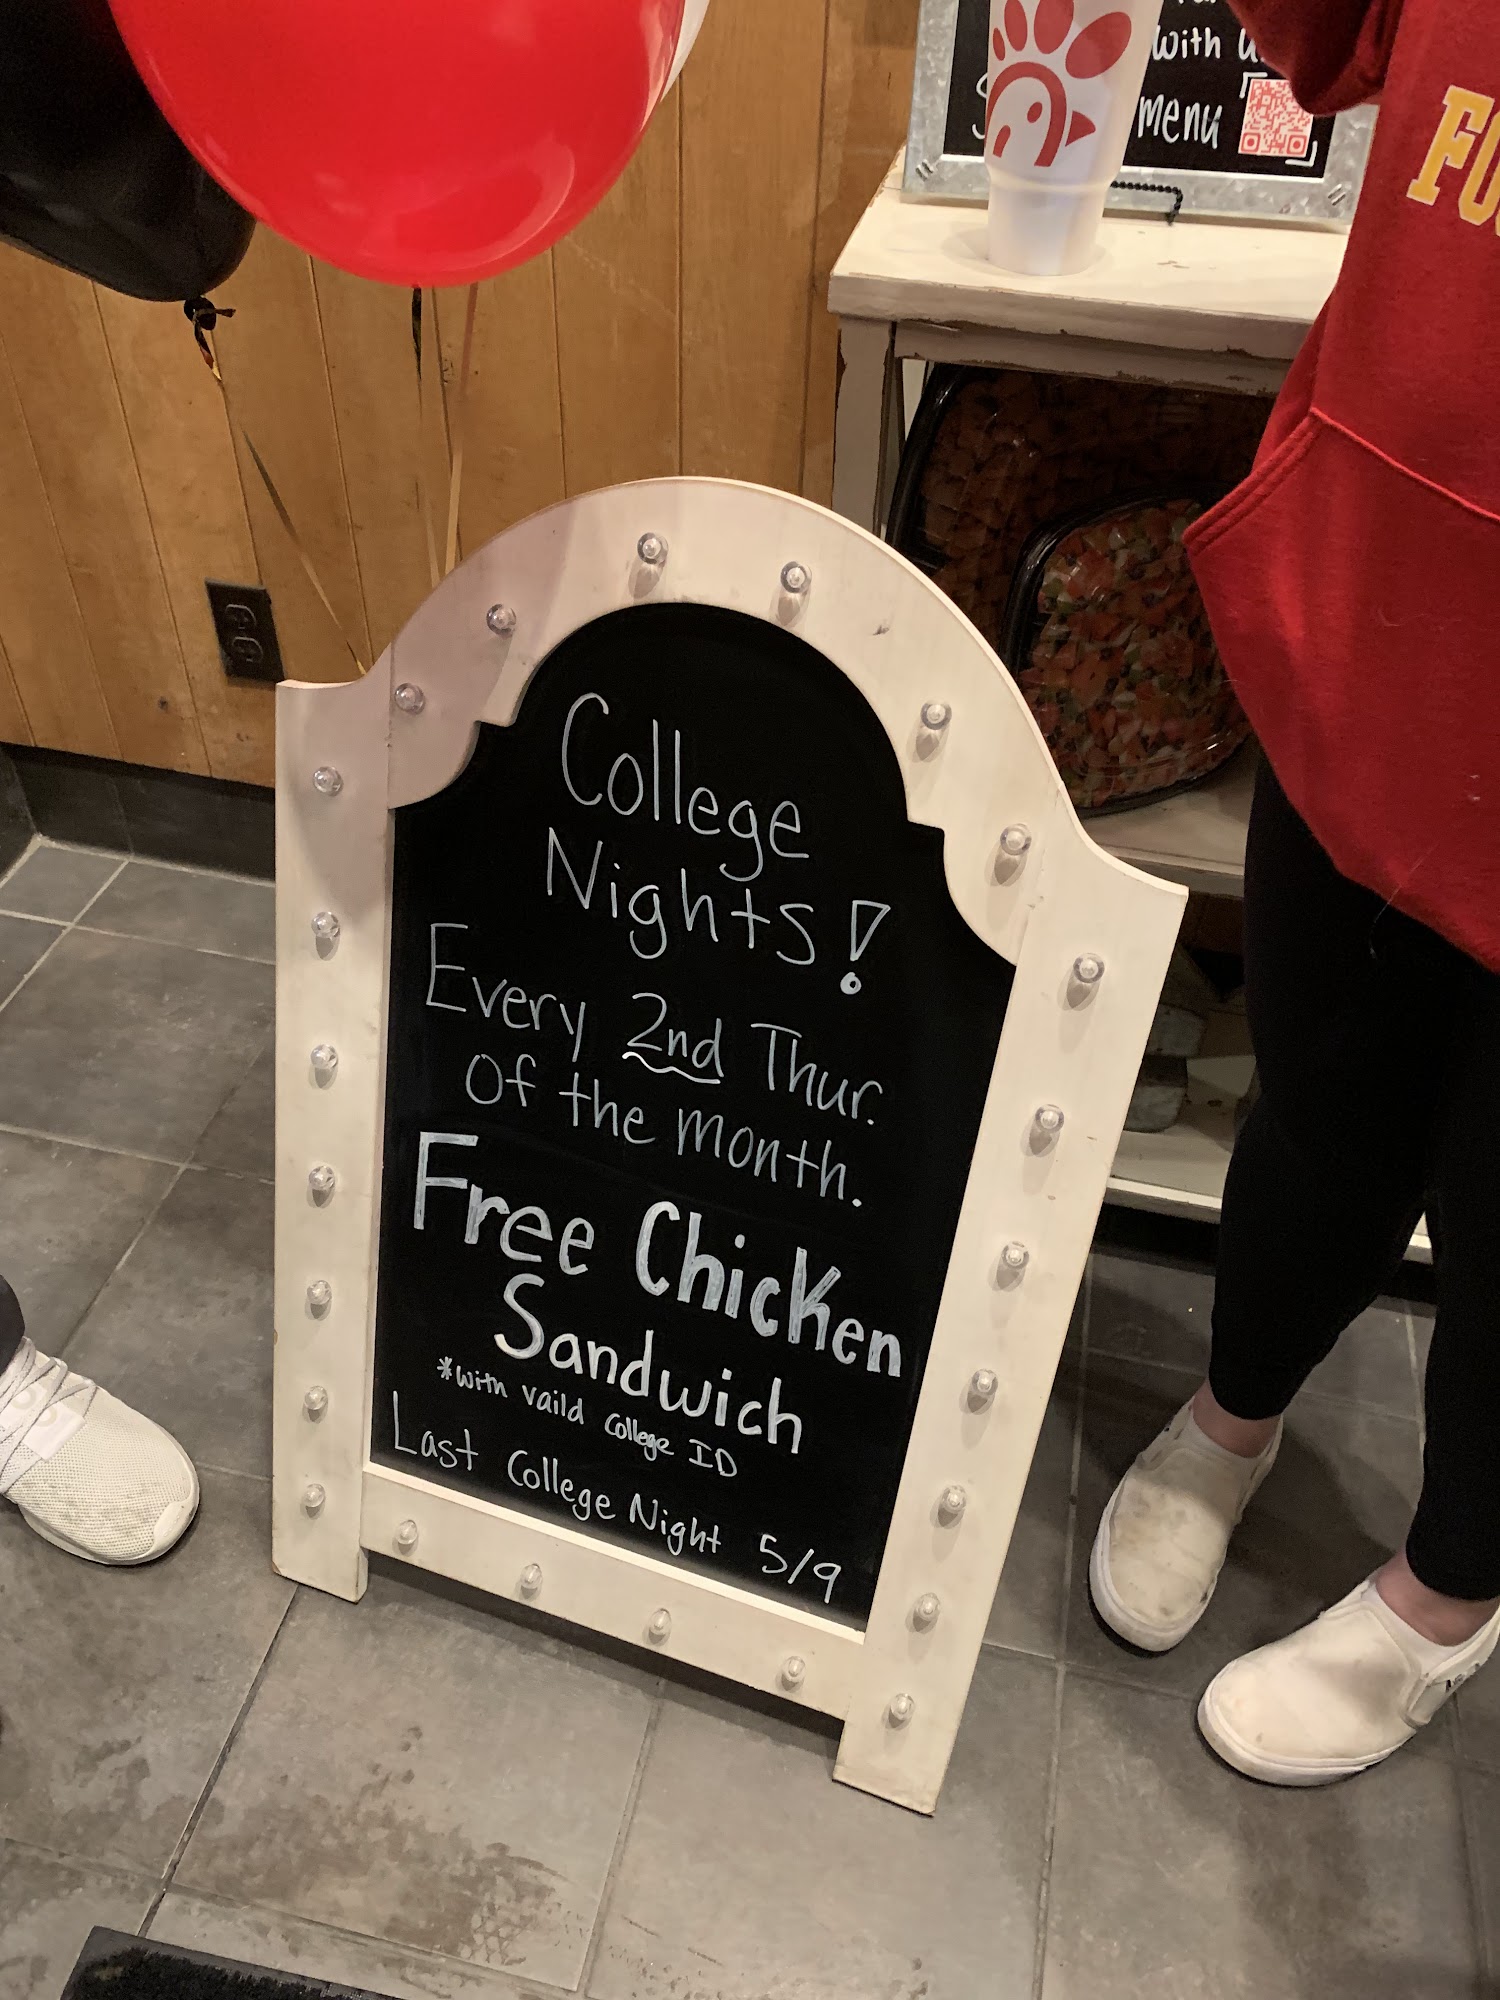 with
menu
FO
College
Nights!
Every 2nd Thur.
Of the month.
Free Chicken
Sandwich
*with vaild College ID
Last College Night 5/9